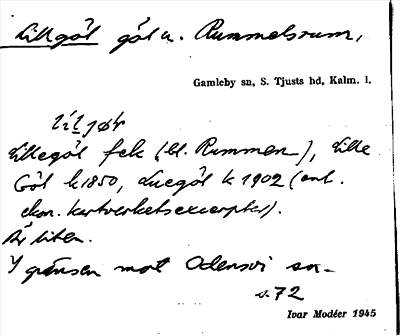 Lillgöl göl n. Rummelsrum,
Gamleby sn, S. Tjusts hd, Kalm. l.
Lillegöl fek (bl. Rummen), Lille
Göl k 1850, Lucegöl k 1902 (enl.
ekon. kartverketsexcerpter).
Är liten.
I gränsen mot Odensvi sn
s. 72
Ivar Modéer 1945